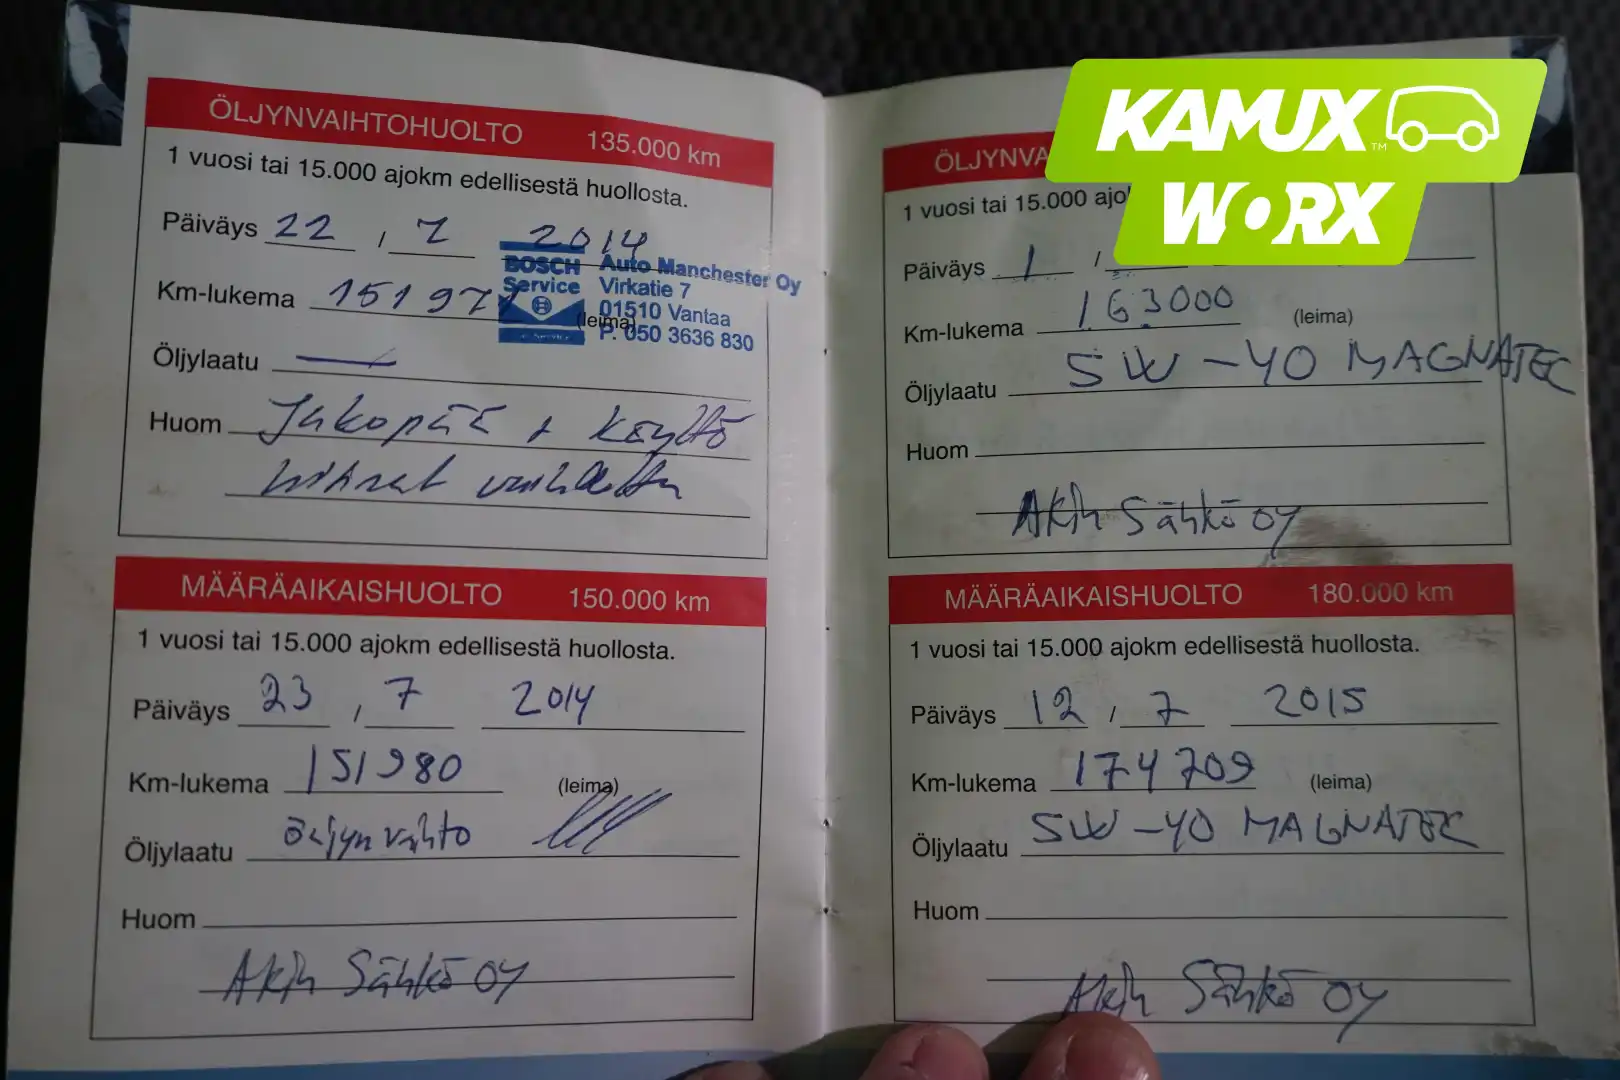 ÖLJYNVAIHTOHUOLTO 135.000 km
1 vuosi tai 15.000 ajokm edellisestä huollosta.
Päiväys 22 / 7 2014
BOSCH Service
Auto Manchester Oy
Virkatie 7
01510 Vantaa
P. 050 3636 830
Km-lukema 151971 (leima)
Öljylaatu —
Huom Jakopää + käyttö
hihnat vaihdettu
MÄÄRÄAIKAISHUOLTO 150.000 km
1 vuosi tai 15.000 ajokm edellisestä huollosta.
Päiväys 23 / 7 2014
Km-lukema 151980 (leima)
Öljylaatu öljyn vaihto
Huom
Akin Sähkö OY
KAMUX™
WORX
ÖLJYNVA
1 vuosi tai 15.000 ajo
Päiväys 1 /
Km-lukema 163000 (leima)
Öljylaatu 5W-40 MAGNATEC
Huom
Akin Sähkö OY
MÄÄRÄAIKAISHUOLTO 180.000 km
1 vuosi tai 15.000 ajokm edellisestä huollosta.
Päiväys 12 / 7 2015
Km-lukema 174709 (leima)
Öljylaatu 5W-40 MAGNATEC
Huom
Akin Sähkö OY